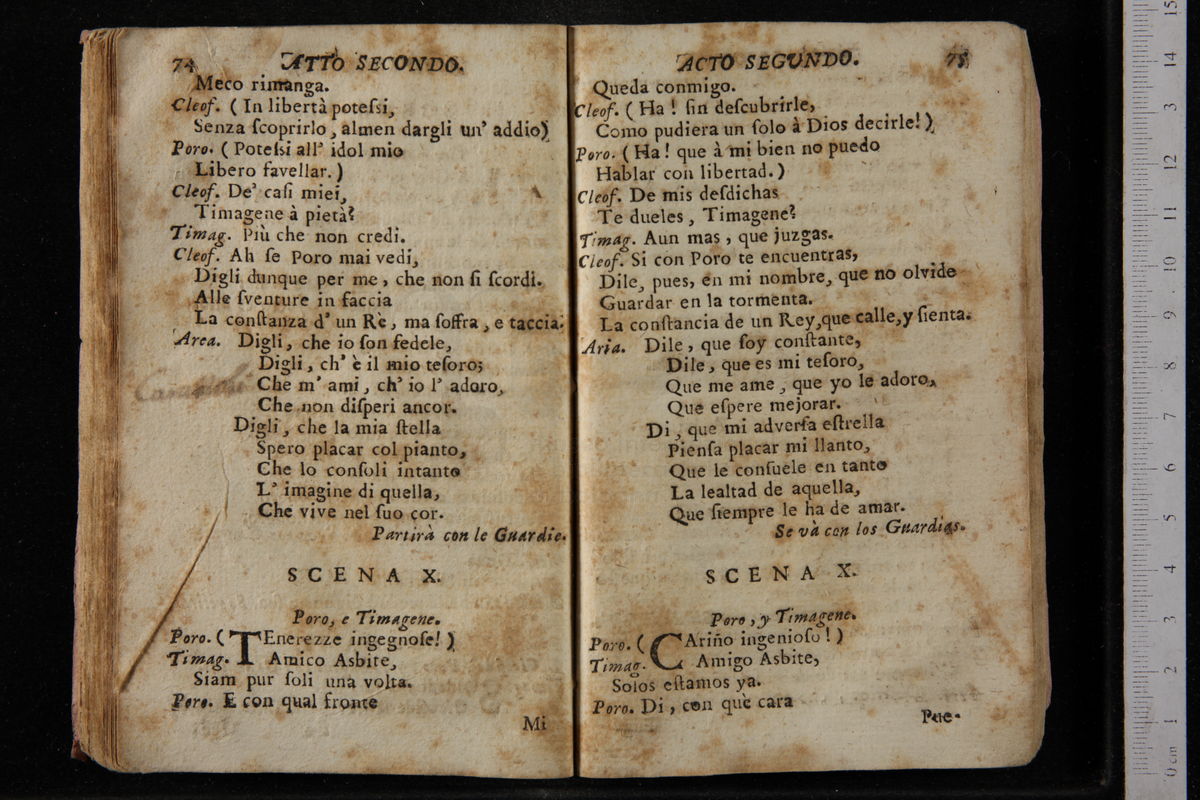 74 ATTO SECONDO.
Meco rimanga.
Cleof. (In libertà poteſsi,
Senza ſcoprirlo, almen dargli un' addio)
Poro. (Poteſsi all' idol mio
Libero favellar.)
Cleof. De' caſi miei,
Timagene à pietà?
Timag. Più che non credi.
Cleof. Ah ſe Poro mai vedi,
Digli dunque per me, che non ſi ſcordi.
Alle ſventure in faccia
La conſtanza d' un Rè, ma ſoffra, e taccia.
Area. Digli, che io ſon fedele,
Digli, ch' è il mio teſoro;
Che m' ami, ch' io l' adoro,
Che non diſperi ancor.
Digli, che la mia ſtella
Spero placar col pianto,
Che lo conſoli intanto
L' imagine di quella,
Che vive nel ſuo cor.
Partirà con le Guardie.
SCENA X.
Poro, e Timagene.
Poro. (TEnerezze ingegnoſe!)
Timag. Amico Asbite,
Siam pur ſoli una volta.
Poro. E con qual fronte
Mi
ACTO SEGUNDO. 75
Queda conmigo.
Cleof. (Ha! ſin deſcubrirle,
Como pudiera un ſolo à Dios decirle!)
Poro. (Ha! que à mi bien no puedo
Hablar con libertad.)
Cleof. De mis deſdichas
Te dueles, Timagene?
Timag. Aun mas, que juzgas.
Cleof. Si con Poro te encuentras,
Dile, pues, en mi nombre, que no olvide
Guardar en la tormenta.
La conſtancia de un Rey, que calle, y ſienta.
Aria. Dile, que ſoy conſtante,
Dile, que es mi teſoro,
Que me ame, que yo le adoro,
Que eſpere mejorar.
Di, que mi adverſa eſtrella
Pienſa placar mi llanto,
Que le conſuele en tanto
La lealtad de aquella,
Que ſiempre le ha de amar.
Se và con los Guardias.
SCENA X.
Poro, y Timagene.
Poro. (CAriño ingenioſo!)
Timag. Amigo Asbite,
Solos eſtamos ya.
Poro. Di, con què cara
Pue-
0 cm 1 2 3 4 5 6 7 8 9 10 11 12 3 14 15